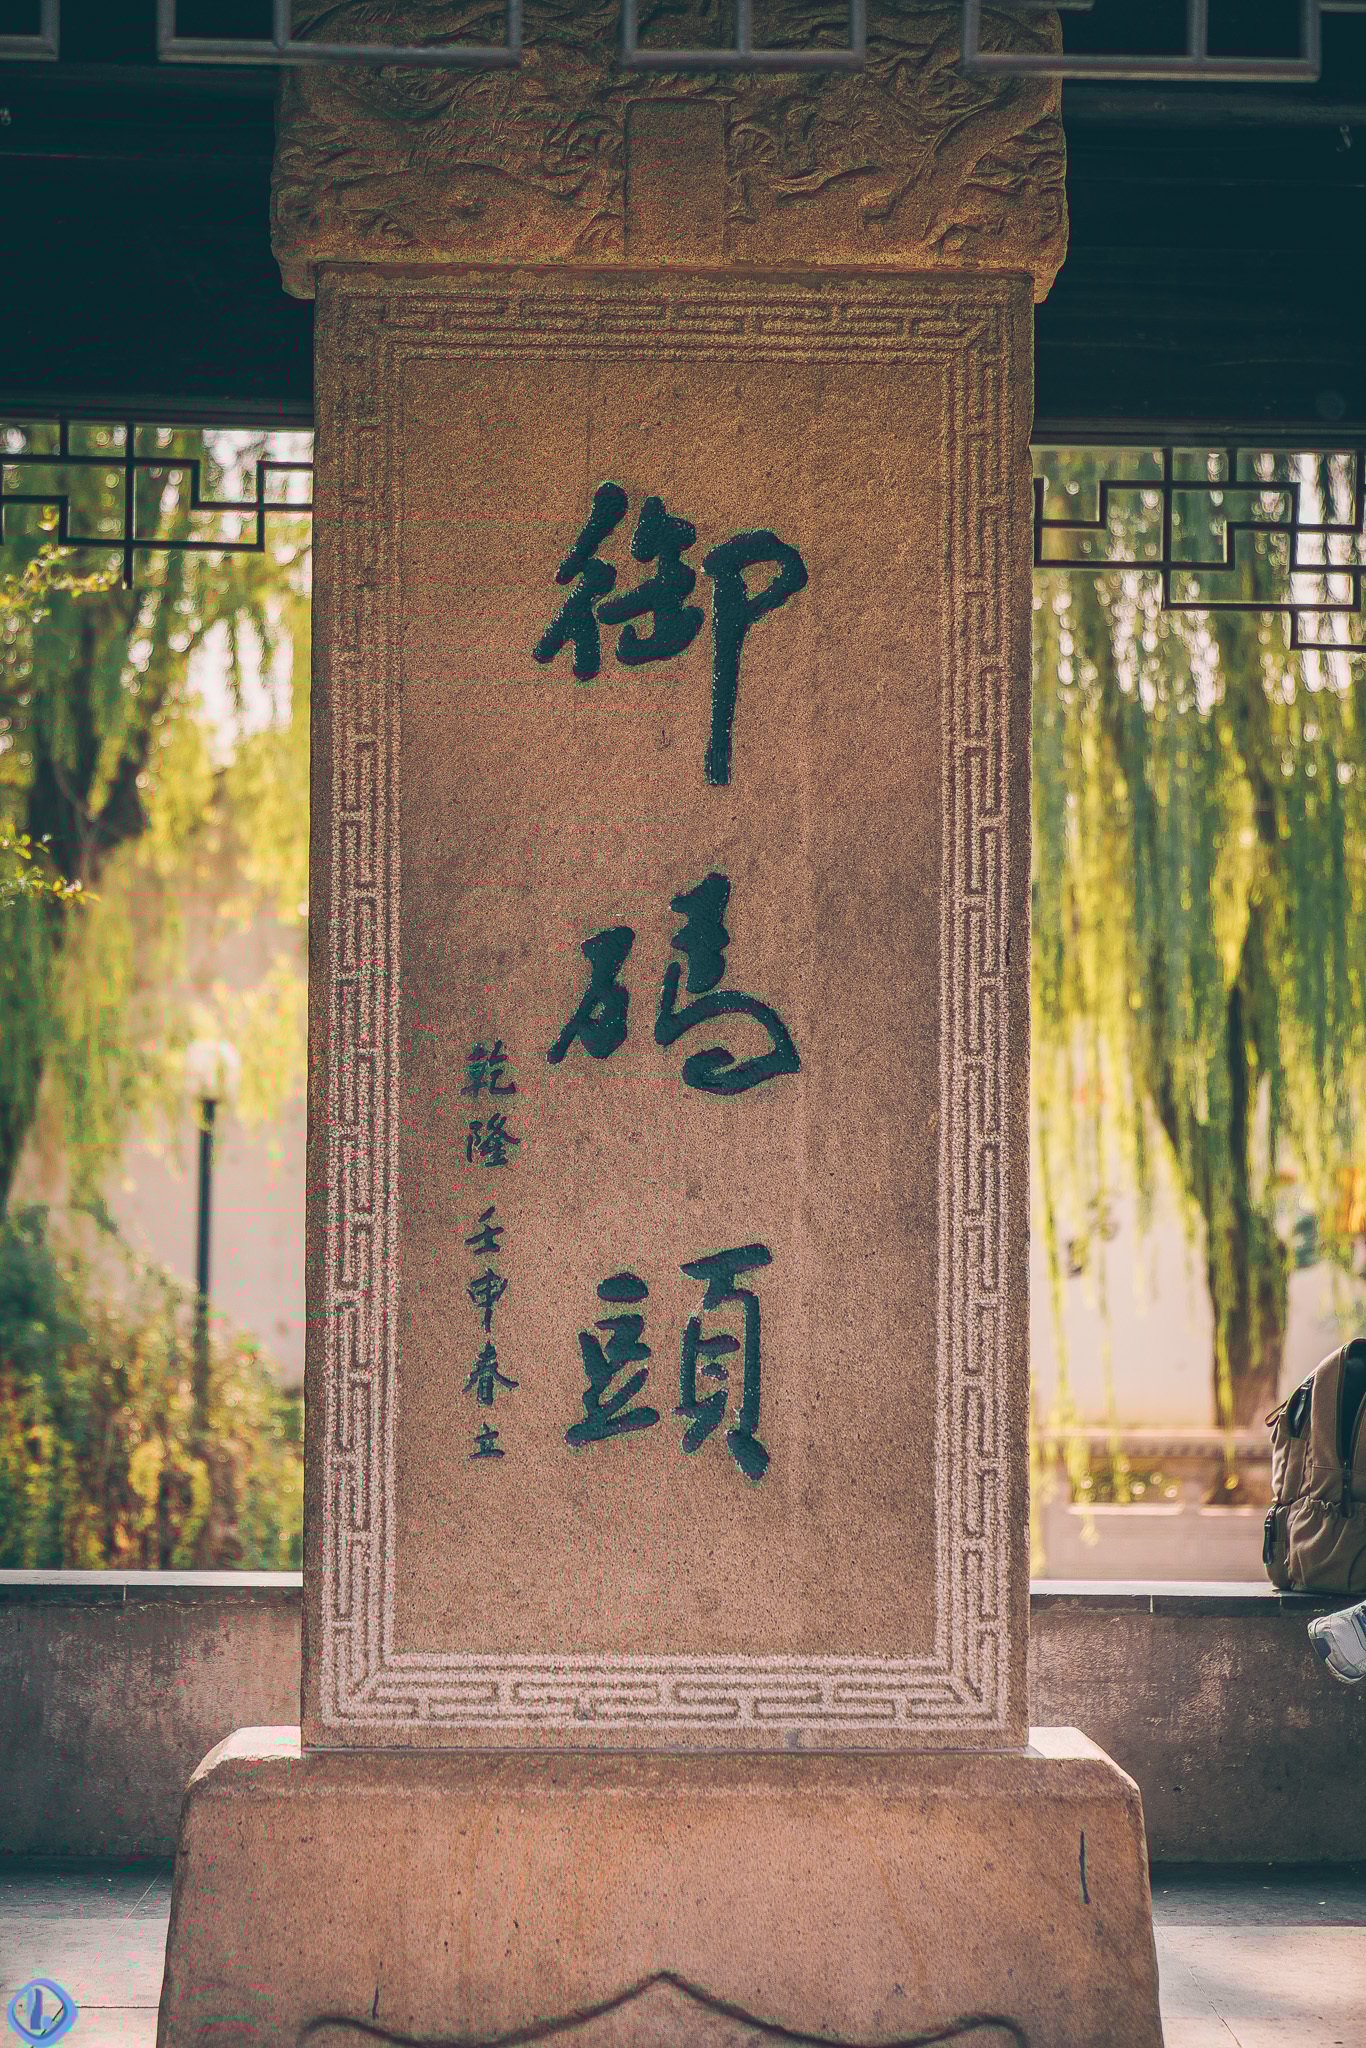 御碼頭
乾隆壬申春立